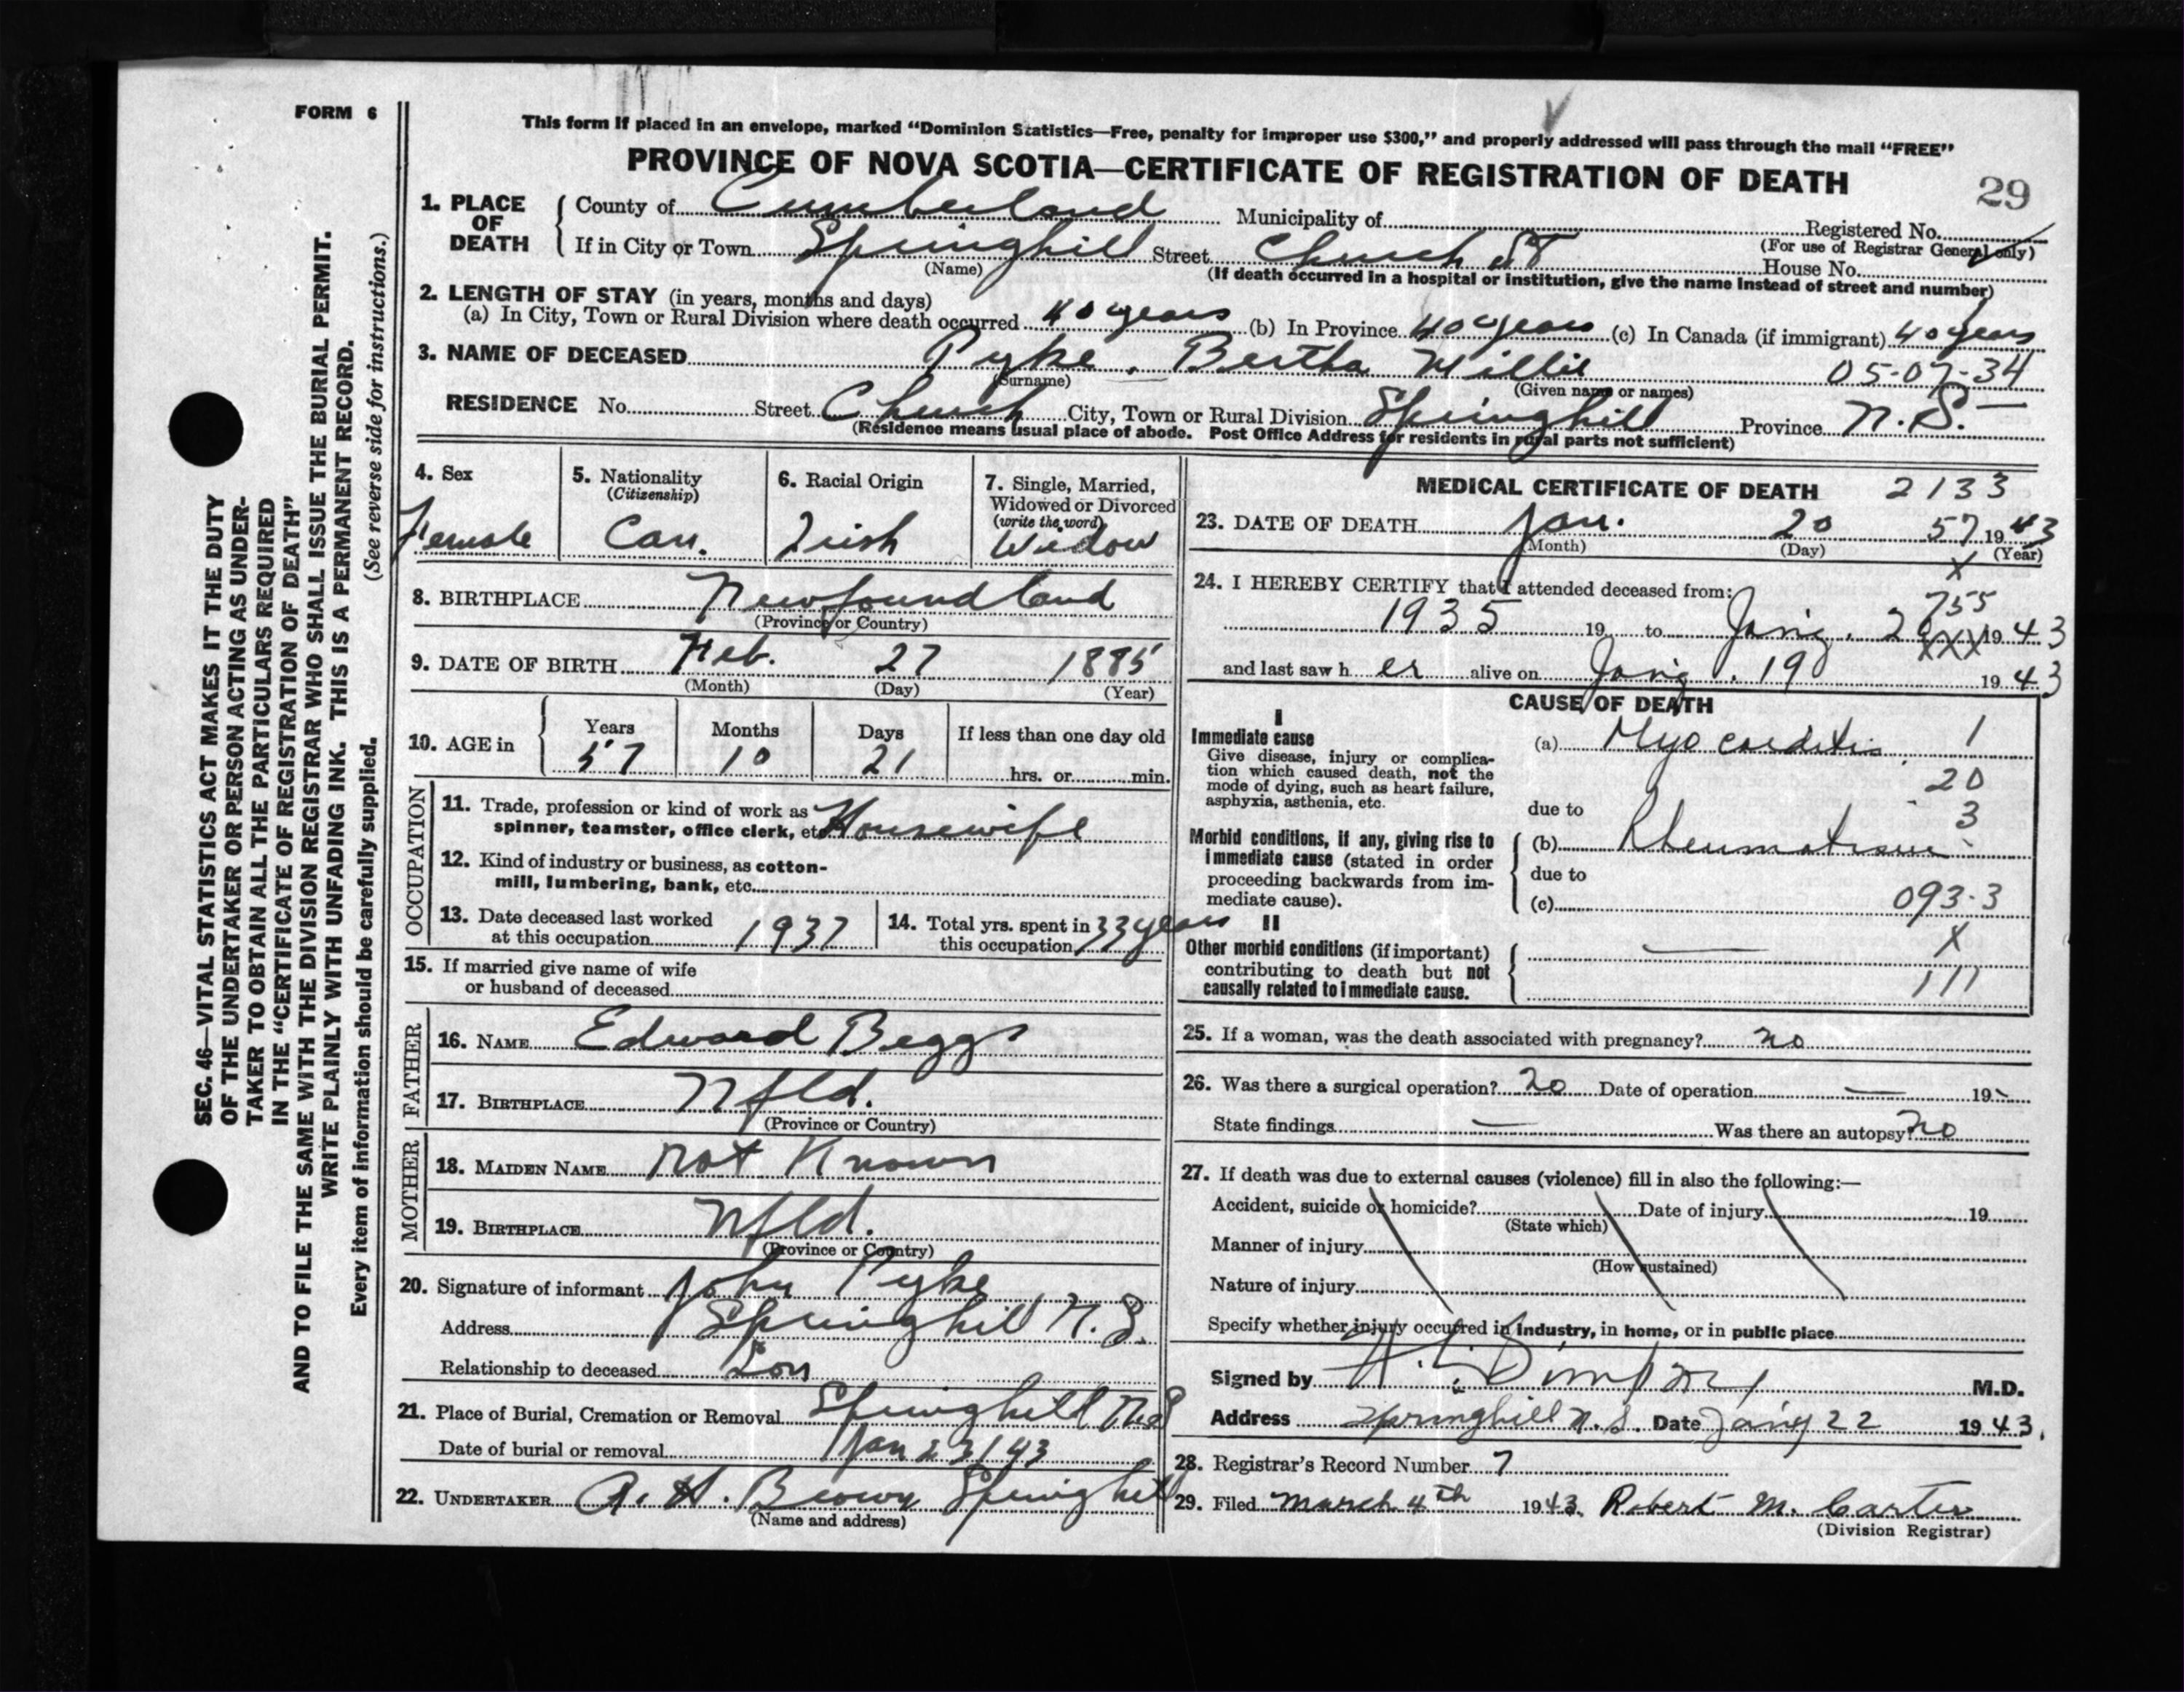 FORM 6
This form if placed in an envelope, marked “Dominion Statistics—Free, penalty for improper use $300,” and properly addressed will pass through the mail “FREE”
PROVINCE OF NOVA SCOTIA—CERTIFICATE OF REGISTRATION OF DEATH
29
1. PLACE OF DEATH
County of Cumberland Municipality of Registered No.
(For use of Registrar General only)
If in City or Town Springhill Street Church St House No.
(Name) (If death occurred in a hospital or institution, give the name instead of street and number)
2. LENGTH OF STAY (in years, months and days)
(a) In City, Town or Rural Division where death occurred 40 years (b) In Province 40 years (c) In Canada (if immigrant) 40 years
3. NAME OF DECEASED Pyke, Bertha Millie 05-07-34
(Surname) (Given name or names)
RESIDENCE No. Street Church City, Town or Rural Division Springhill Province N.S.
(Residence means usual place of abode. Post Office Address for residents in rural parts not sufficient)
4. Sex
Female
5. Nationality
(Citizenship)
Can.
6. Racial Origin
Irish
7. Single, Married,
Widowed or Divorced
(write the word)
Widow
8. BIRTHPLACE Newfoundland
(Province or Country)
9. DATE OF BIRTH Feb. 27 1885
(Month) (Day) (Year)
10. AGE in
Years Months Days If less than one day old
57 10 21 hrs. or min.
OCCUPATION
11. Trade, profession or kind of work as
spinner, teamster, office clerk, etc. Housewife
12. Kind of industry or business, as cotton-
mill, lumbering, bank, etc.
13. Date deceased last worked
at this occupation 1937
14. Total yrs. spent in
this occupation 33 years
15. If married give name of wife
or husband of deceased
FATHER
16. NAME Edward Beggs
17. BIRTHPLACE Nfld.
(Province or Country)
MOTHER
18. MAIDEN NAME not Known
19. BIRTHPLACE Nfld.
(Province or Country)
20. Signature of informant John Pyke
Address Springhill N.S.
Relationship to deceased Son
21. Place of Burial, Cremation or Removal Springhill N.S
Date of burial or removal Jan 23/43
22. UNDERTAKER A. H. Brown Springhill
(Name and address)
MEDICAL CERTIFICATE OF DEATH 2133
23. DATE OF DEATH Jan. 20 57 1943
(Month) (Day) (Year)
X
24. I HEREBY CERTIFY that I attended deceased from:
755
1935 19 to Jan'y. 20 XXX 1943
and last saw her alive on Jan'y. 19 1943
CAUSE OF DEATH
I
Immediate cause
Give disease, injury or complica-
tion which caused death, not the
mode of dying, such as heart failure,
asphyxia, asthenia, etc.
(a) Myocarditis 1
20
due to
3
Morbid conditions, if any, giving rise to
immediate cause (stated in order
proceeding backwards from im-
mediate cause).
(b) Rheumatism
due to
(c) 093-3
II
Other morbid conditions (if important)
contributing to death but not
causally related to immediate cause.
X
111
25. If a woman, was the death associated with pregnancy? no
26. Was there a surgical operation? no Date of operation — 19
State findings — Was there an autopsy? no
27. If death was due to external causes (violence) fill in also the following:—
Accident, suicide or homicide? Date of injury 19
(State which)
Manner of injury
(How sustained)
Nature of injury
Specify whether injury occurred in industry, in home, or in public place
Signed by M.D.
Address Springhill N.S. Date Jan'y 22 1943.
28. Registrar's Record Number 7
29. Filed March 4th 1943. Robert M. Carter
(Division Registrar)
SEC. 46—VITAL STATISTICS ACT MAKES IT THE DUTY
OF THE UNDERTAKER OR PERSON ACTING AS UNDER-
TAKER TO OBTAIN ALL THE PARTICULARS REQUIRED
IN THE “CERTIFICATE OF REGISTRATION OF DEATH”
AND TO FILE THE SAME WITH THE DIVISION REGISTRAR WHO SHALL ISSUE THE BURIAL PERMIT.
WRITE PLAINLY WITH UNFADING INK. THIS IS A PERMANENT RECORD.
Every item of information should be carefully supplied. (See reverse side for instructions.)